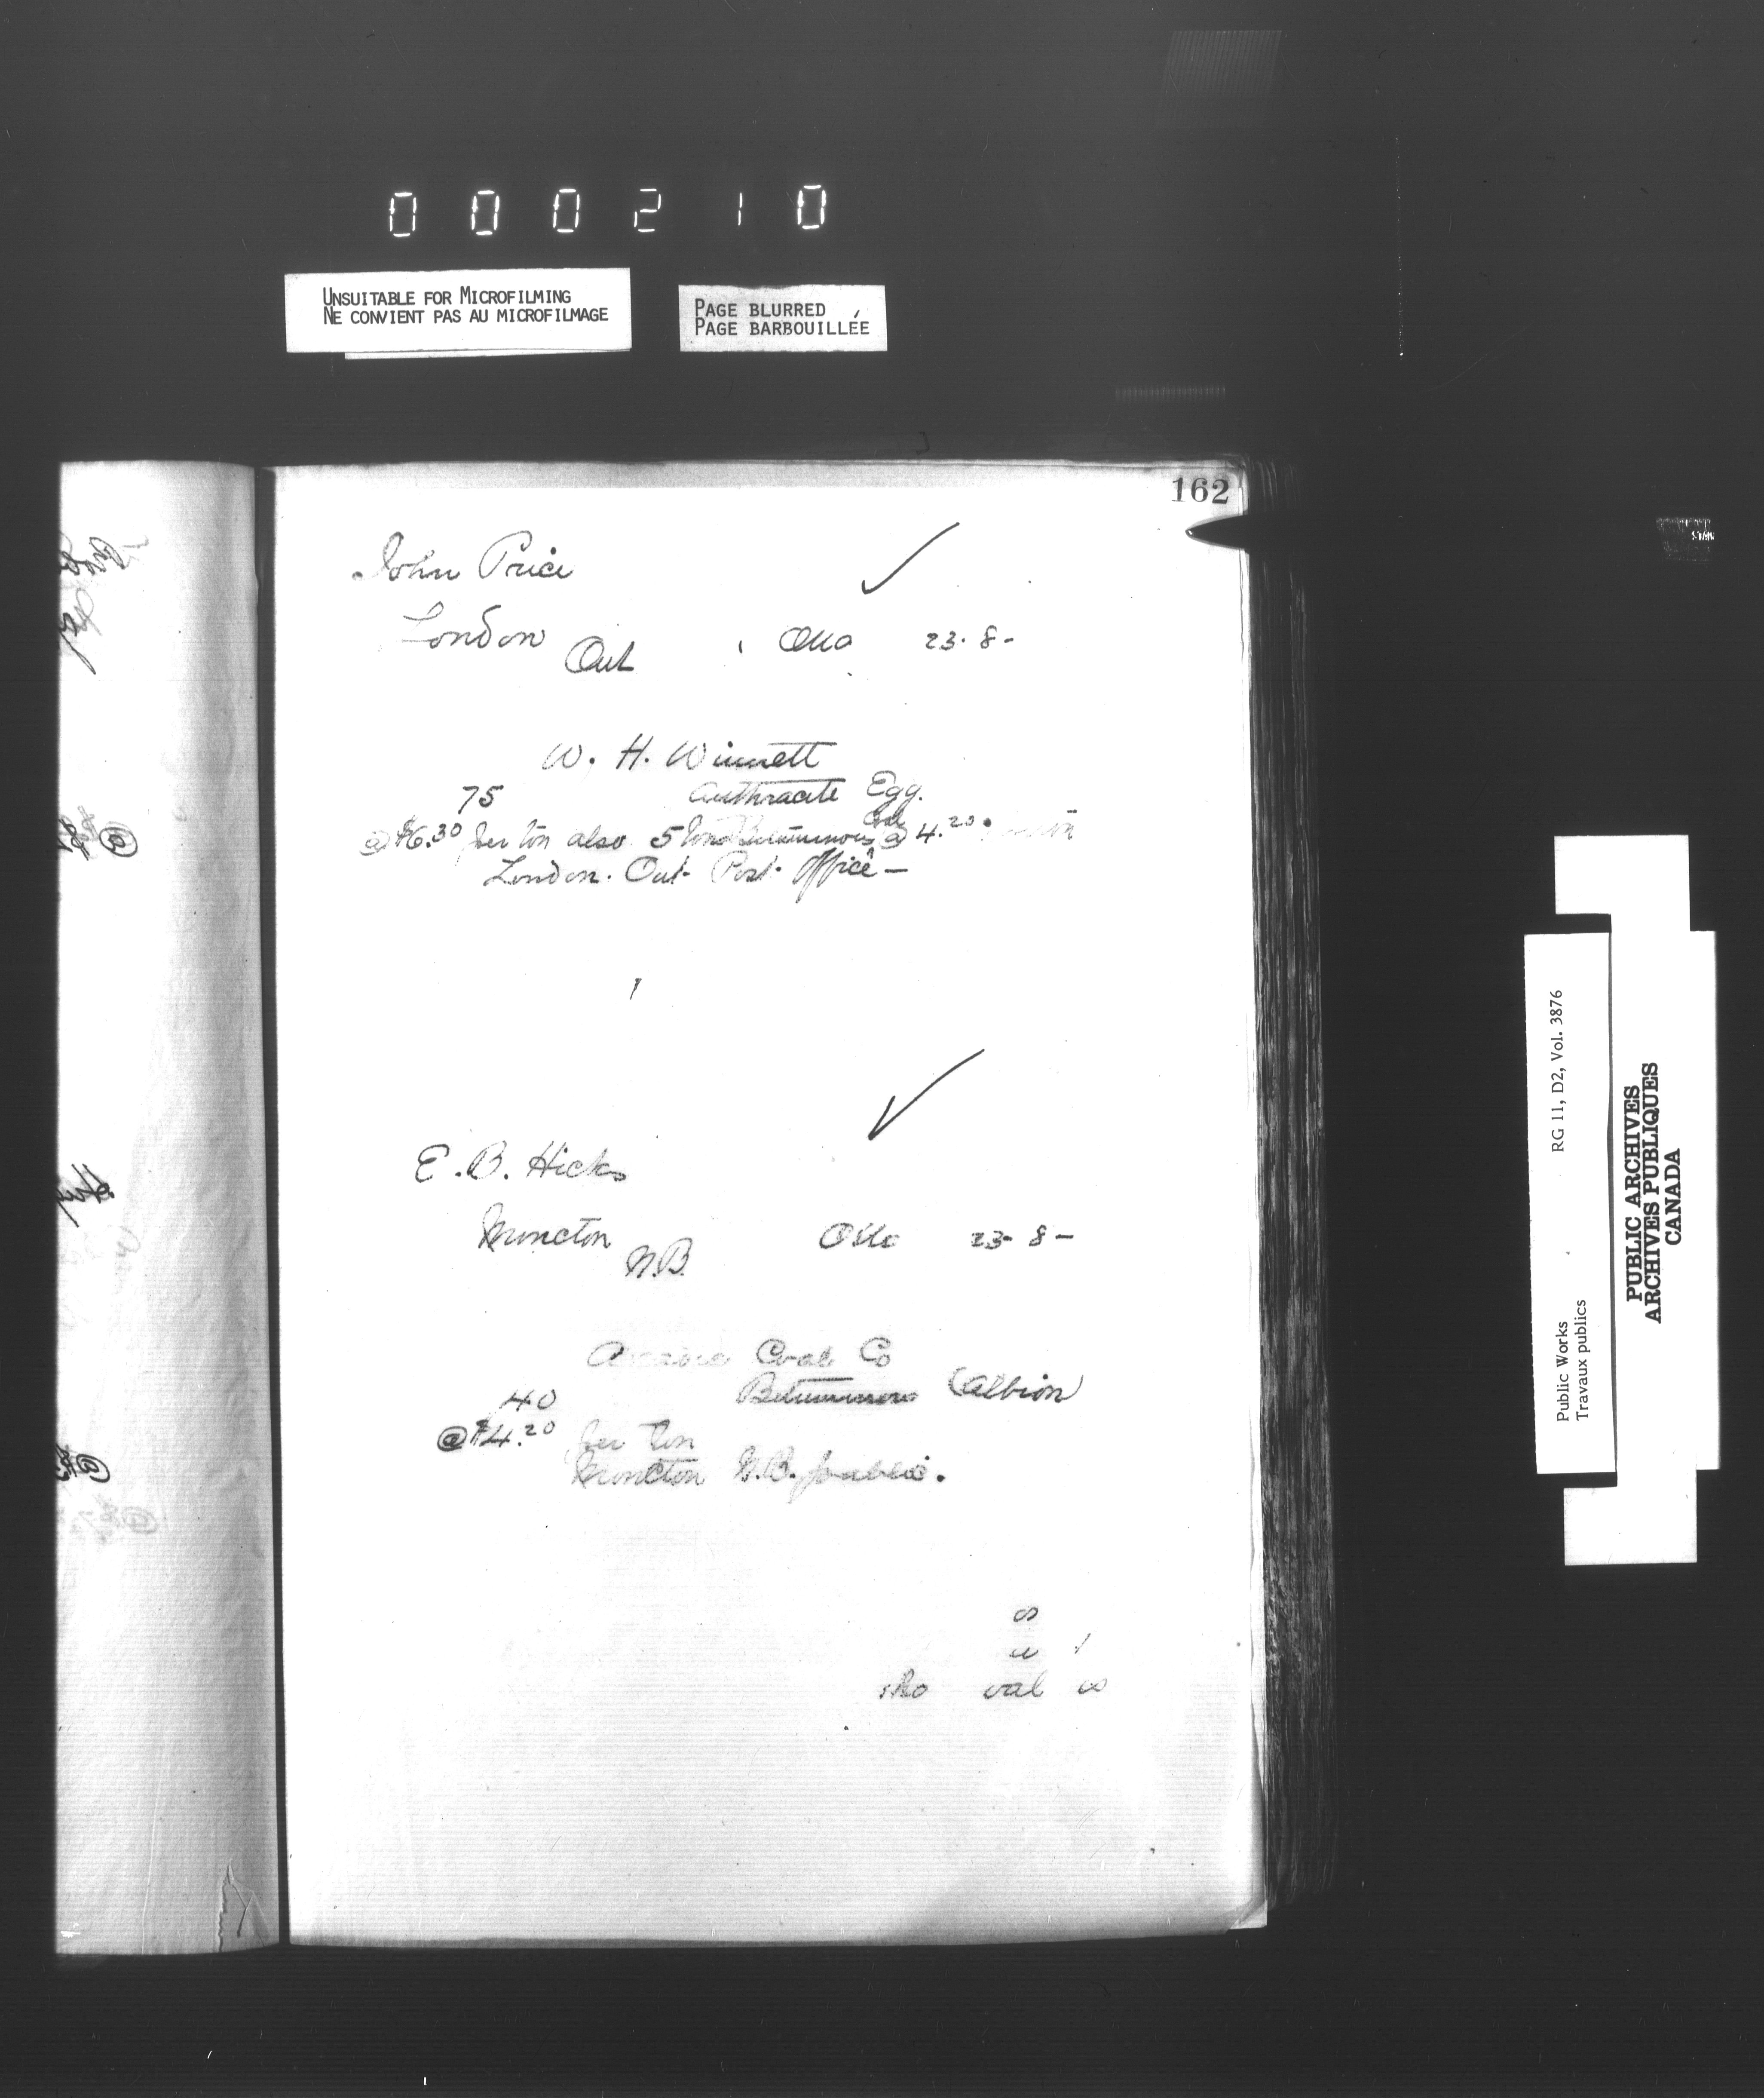 000210
UNSUITABLE FOR MICROFILMING
NE CONVIENT PAS AU MICROFILMAGE
PAGE BLURRED
PAGE BARBOUILLÉE
162
John Price
London
Ont
Otta 23. 8 -
W. H. Winnett
75 Anthracite Egg.
@ $6.30 per ton also 5 tons Bituminous Coal @ 4.20.
London. Ont. Post. Office -
E. B. Hicks
Moncton
N.B.
Otta 23- 8 -
Acadia Coal Co
40 Bituminous (Albion)
@ $4.20 per ton
Moncton N.B. public.
val
RG 11, D2, Vol. 3876
Public Works
Travaux publics
PUBLIC ARCHIVES
ARCHIVES PUBLIQUES
CANADA